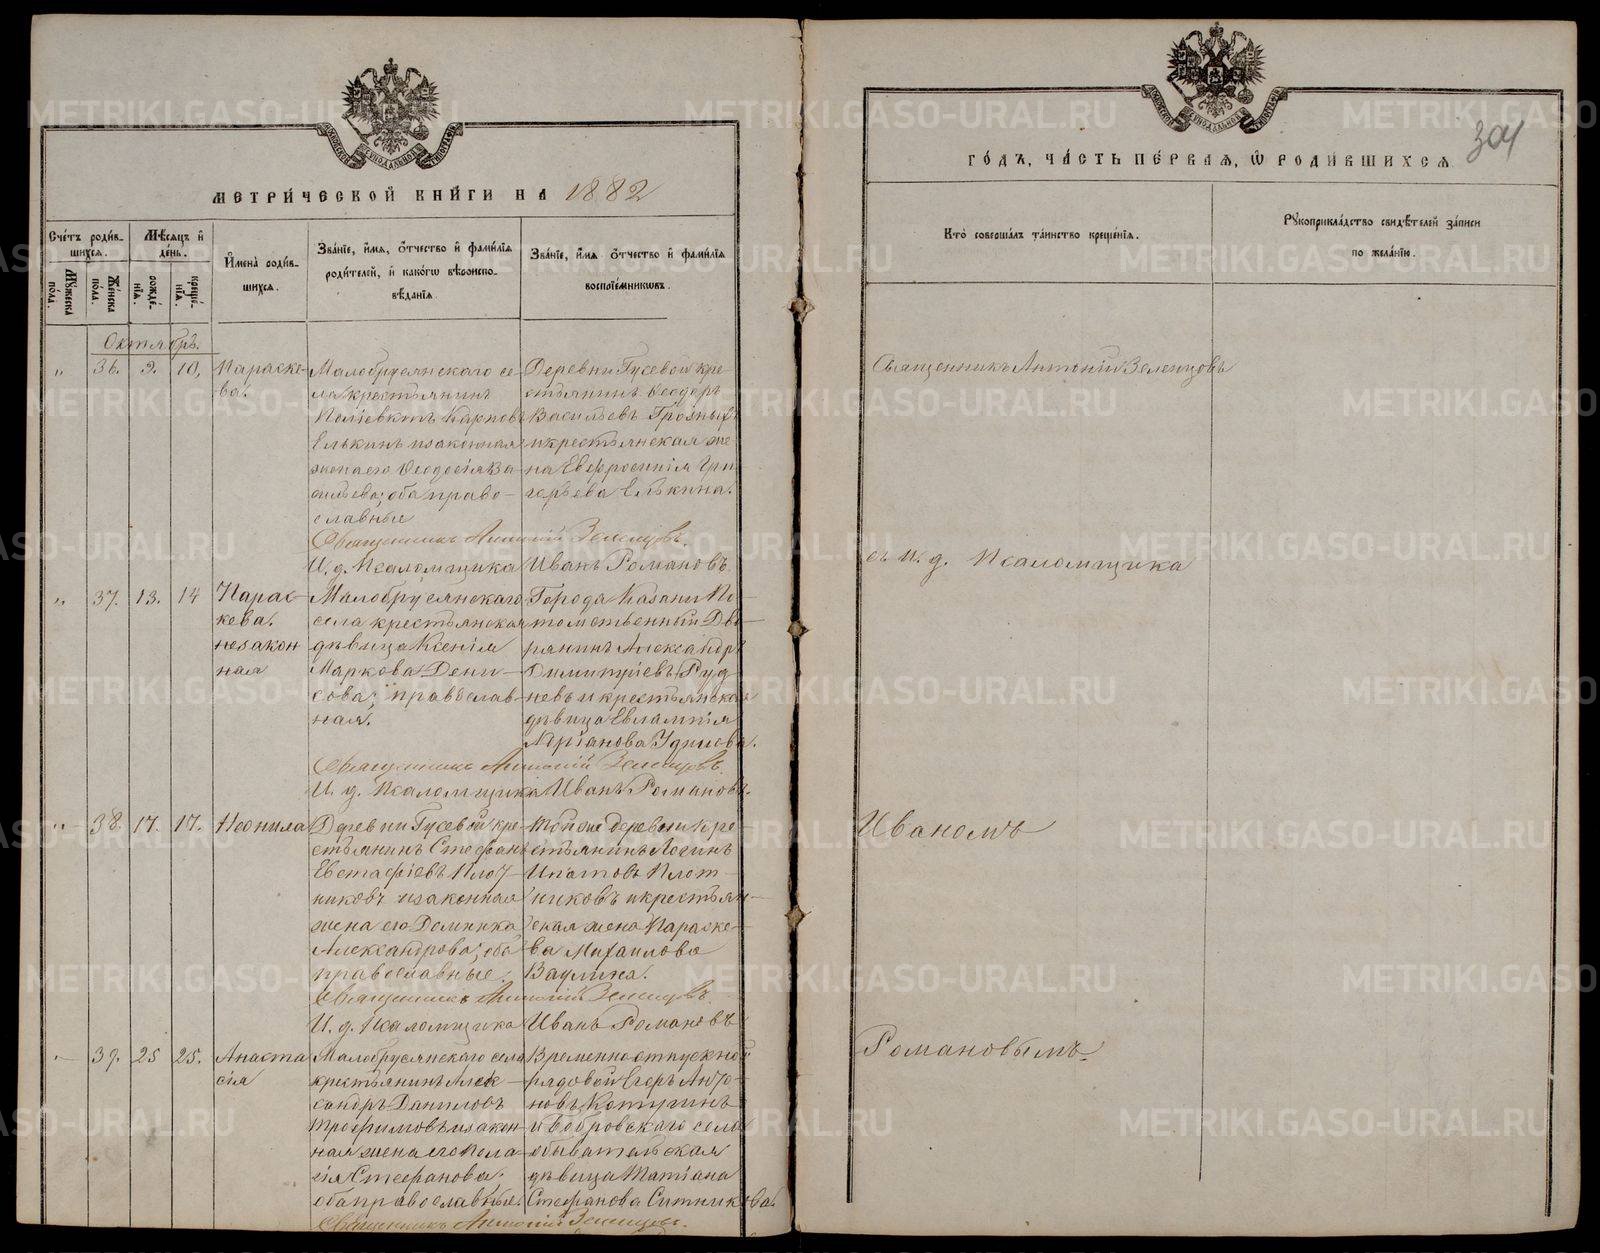 МЕТРИ́ЧЕСКОЙ КНИ́ГИ НА 1882
Сче́тъ роди́в-
шихсѧ.
Мѣсѧцъ и҆
де́нь.
Мꙋ́жеска по́ла.
Же́нска по́ла.
рожде́-нїѧ.
креще́-нїѧ.
И҆мена̀ роди́в-
шихсѧ.
Зва́нїе, и҆́мѧ, ѻ҆́тчество и҆ фами́лїѧ
роди́телей, и҆ како́гѡ вѣроиспо-
вѣ́данїѧ.
Зва́нїе, и҆́мѧ ѻ҆́тчество и҆ фами́лїѧ
воспрїе́мникѡвъ.
Октябрь.
" 36. 9. 10, Параске-
ва.
Малобрусянскаго се-
ла крестьянинъ
Поліевктъ Карповъ
Елькинъ и законная
жена его Ѳеодосія Ва-
сильева; оба право-
славные
Деревни Гусевой кре-
стьянинъ Ѳеодоръ
Васильевъ Грозныхъ
и крестьянская же-
на Евфросинія Гри-
горьева Елькина.
Священникъ Антоній Зеленцовъ.
И. д. Псаломщика Иванъ Романовъ
" 37. 13. 14 Парас-
кева.
незакон
ная
Малобрусянскаго
села крестьянская
дѣвица Ксенія
Маркова Дени-
сова; православ-
ная.
Города Казани По-
томственный Дво-
рянинъ Александръ
Димитріевъ Руд-
невъ и крестьянская
дѣвица Евлампія
Адріанова Удилова.
Священникъ Антоній Зеленцовъ.
И. д. Псаломщика Иванъ Романовъ
" 38. 17. 17. Неонила
Деревни Гусевой кре-
стьянинъ Стефанъ
Евстафіевъ Плот-
никовъ и законная
жена его Домника
Александрова; оба
православные.
Той же деревни кре-
стьянинъ Логинъ
Ипатовъ Плот-
никовъ и крестьян-
ская жена Параске-
ва Михаилова
Ваулина.
Священникъ Антоній Зеленцовъ.
И. д. Псаломщика Иванъ Романовъ
" 39. 25 25. Анаста
сія
Малобрусянскаго села
крестьянинъ Алек-
сандръ Даниловъ
Трофимовъ и закон-
ная жена его Пела-
гія Стефанова;
оба православные.
Временноотпускной
рядовой Егоръ Анто-
новъ Котугинъ
и Бобровскаго села
обывательская
дѣвица Татіана
Стефанова Ситникова.
Священникъ Антоній Зеленцовъ.
ГО́ДЪ, ЧА́СТЬ ПЕ́РВАѦ, Ѡ҆ РОДИ́ВШИХСѦ.
304
Кто̀ соверша́лъ та́инство креще́нїѧ.
Рꙋкоприкла́дство свидѣ́телей за́писи
по жела́нїю.
Священникъ Антоній Зеленцовъ
съ И. д. Псаломщика
Иваномъ
Романовымъ.
METRIKI.GASO-URAL.RU